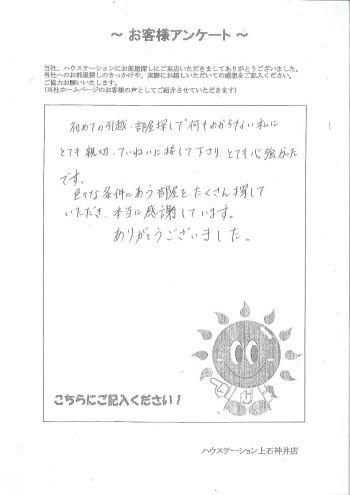 ～ お客様アンケート ～
当社、ハウスステーションにお部屋探しにご来店いただきましてありがとうございました。
当社へのお部屋探しのきっかけや、実際にお越しいただいての感想をご記入ください。
ご協力お願いいたします。
(当社ホームページのお客様の声としてご紹介させていただきます)
初めての引越、部屋探しで何もわからない私に
とても親切、ていねいに接して下さり、とても心強かった
です。
色々な条件にあう部屋をたくさん探して
いただき、本当に感謝しています。
ありがとうございました。
こちらにご記入ください！
ハウステーション上石神井店